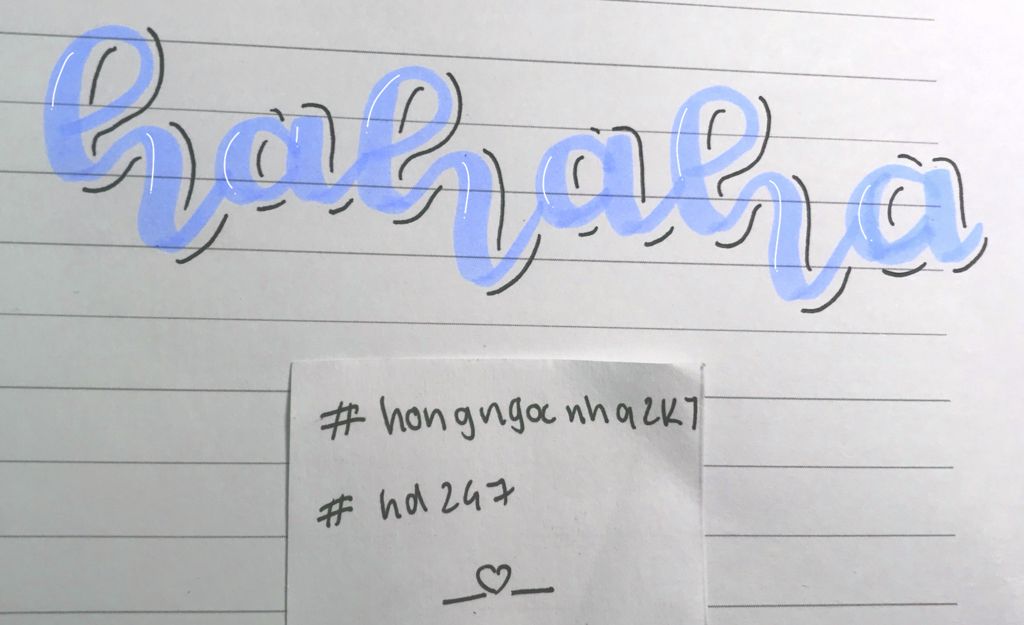 hahaha
#hongngocnha2K7
#hd247